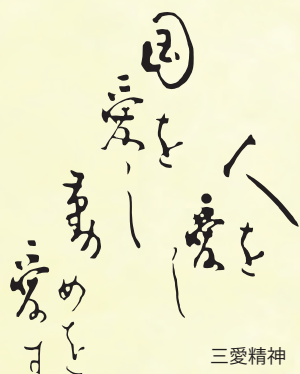 人を愛し
国を愛し
勤めを
愛す
三愛精神